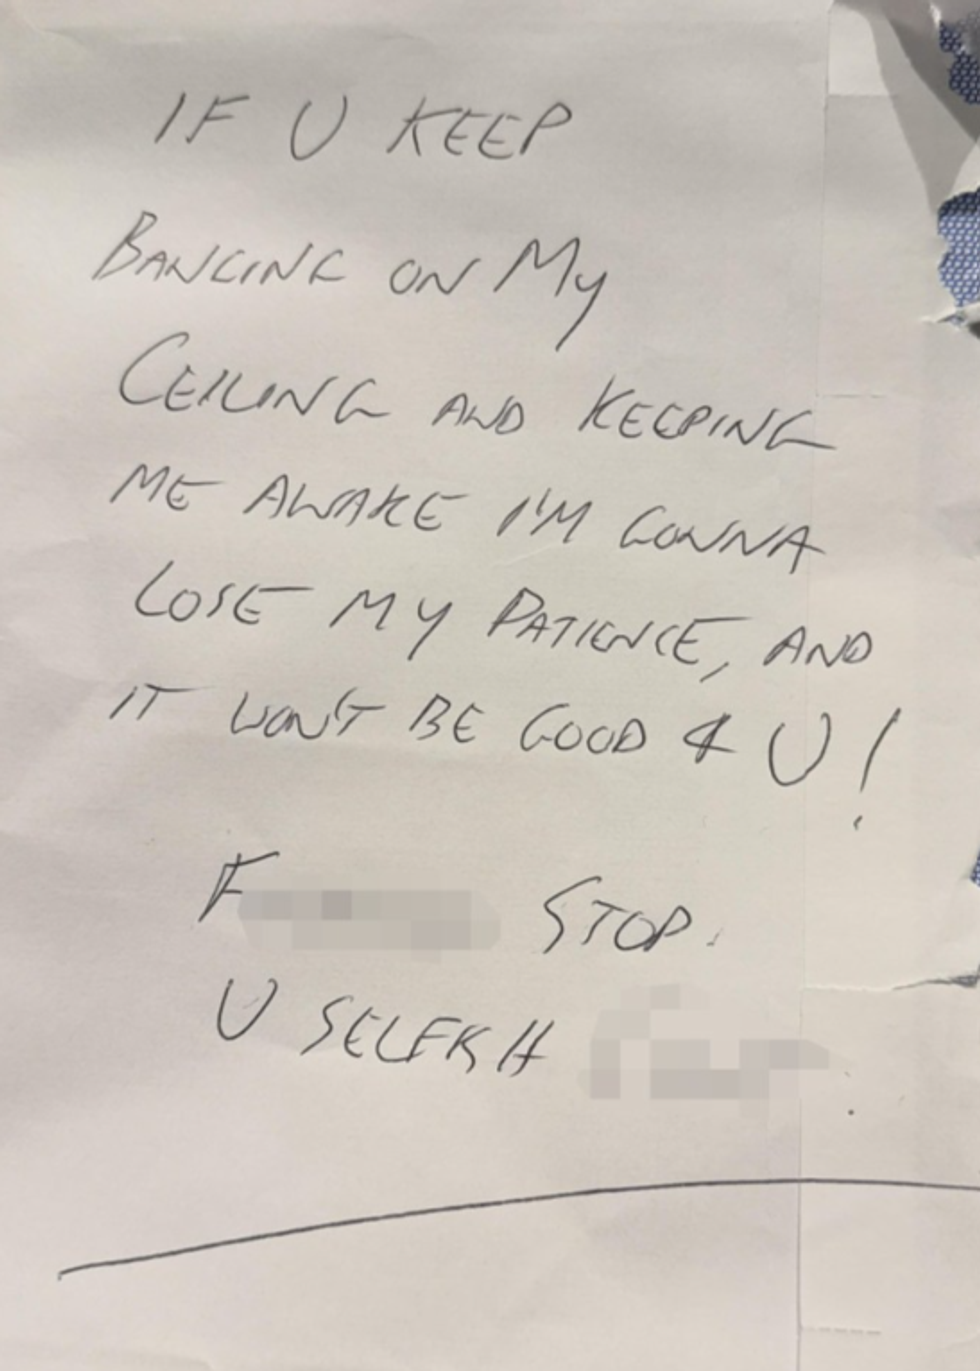 IF U KEEP
BANGING ON MY
CEILING AND KEEPING
ME AWAKE I'M GONNA
LOSE MY PATIENCE, AND
IT WON'T BE GOOD 4 U!
F STOP.
U SELFISH